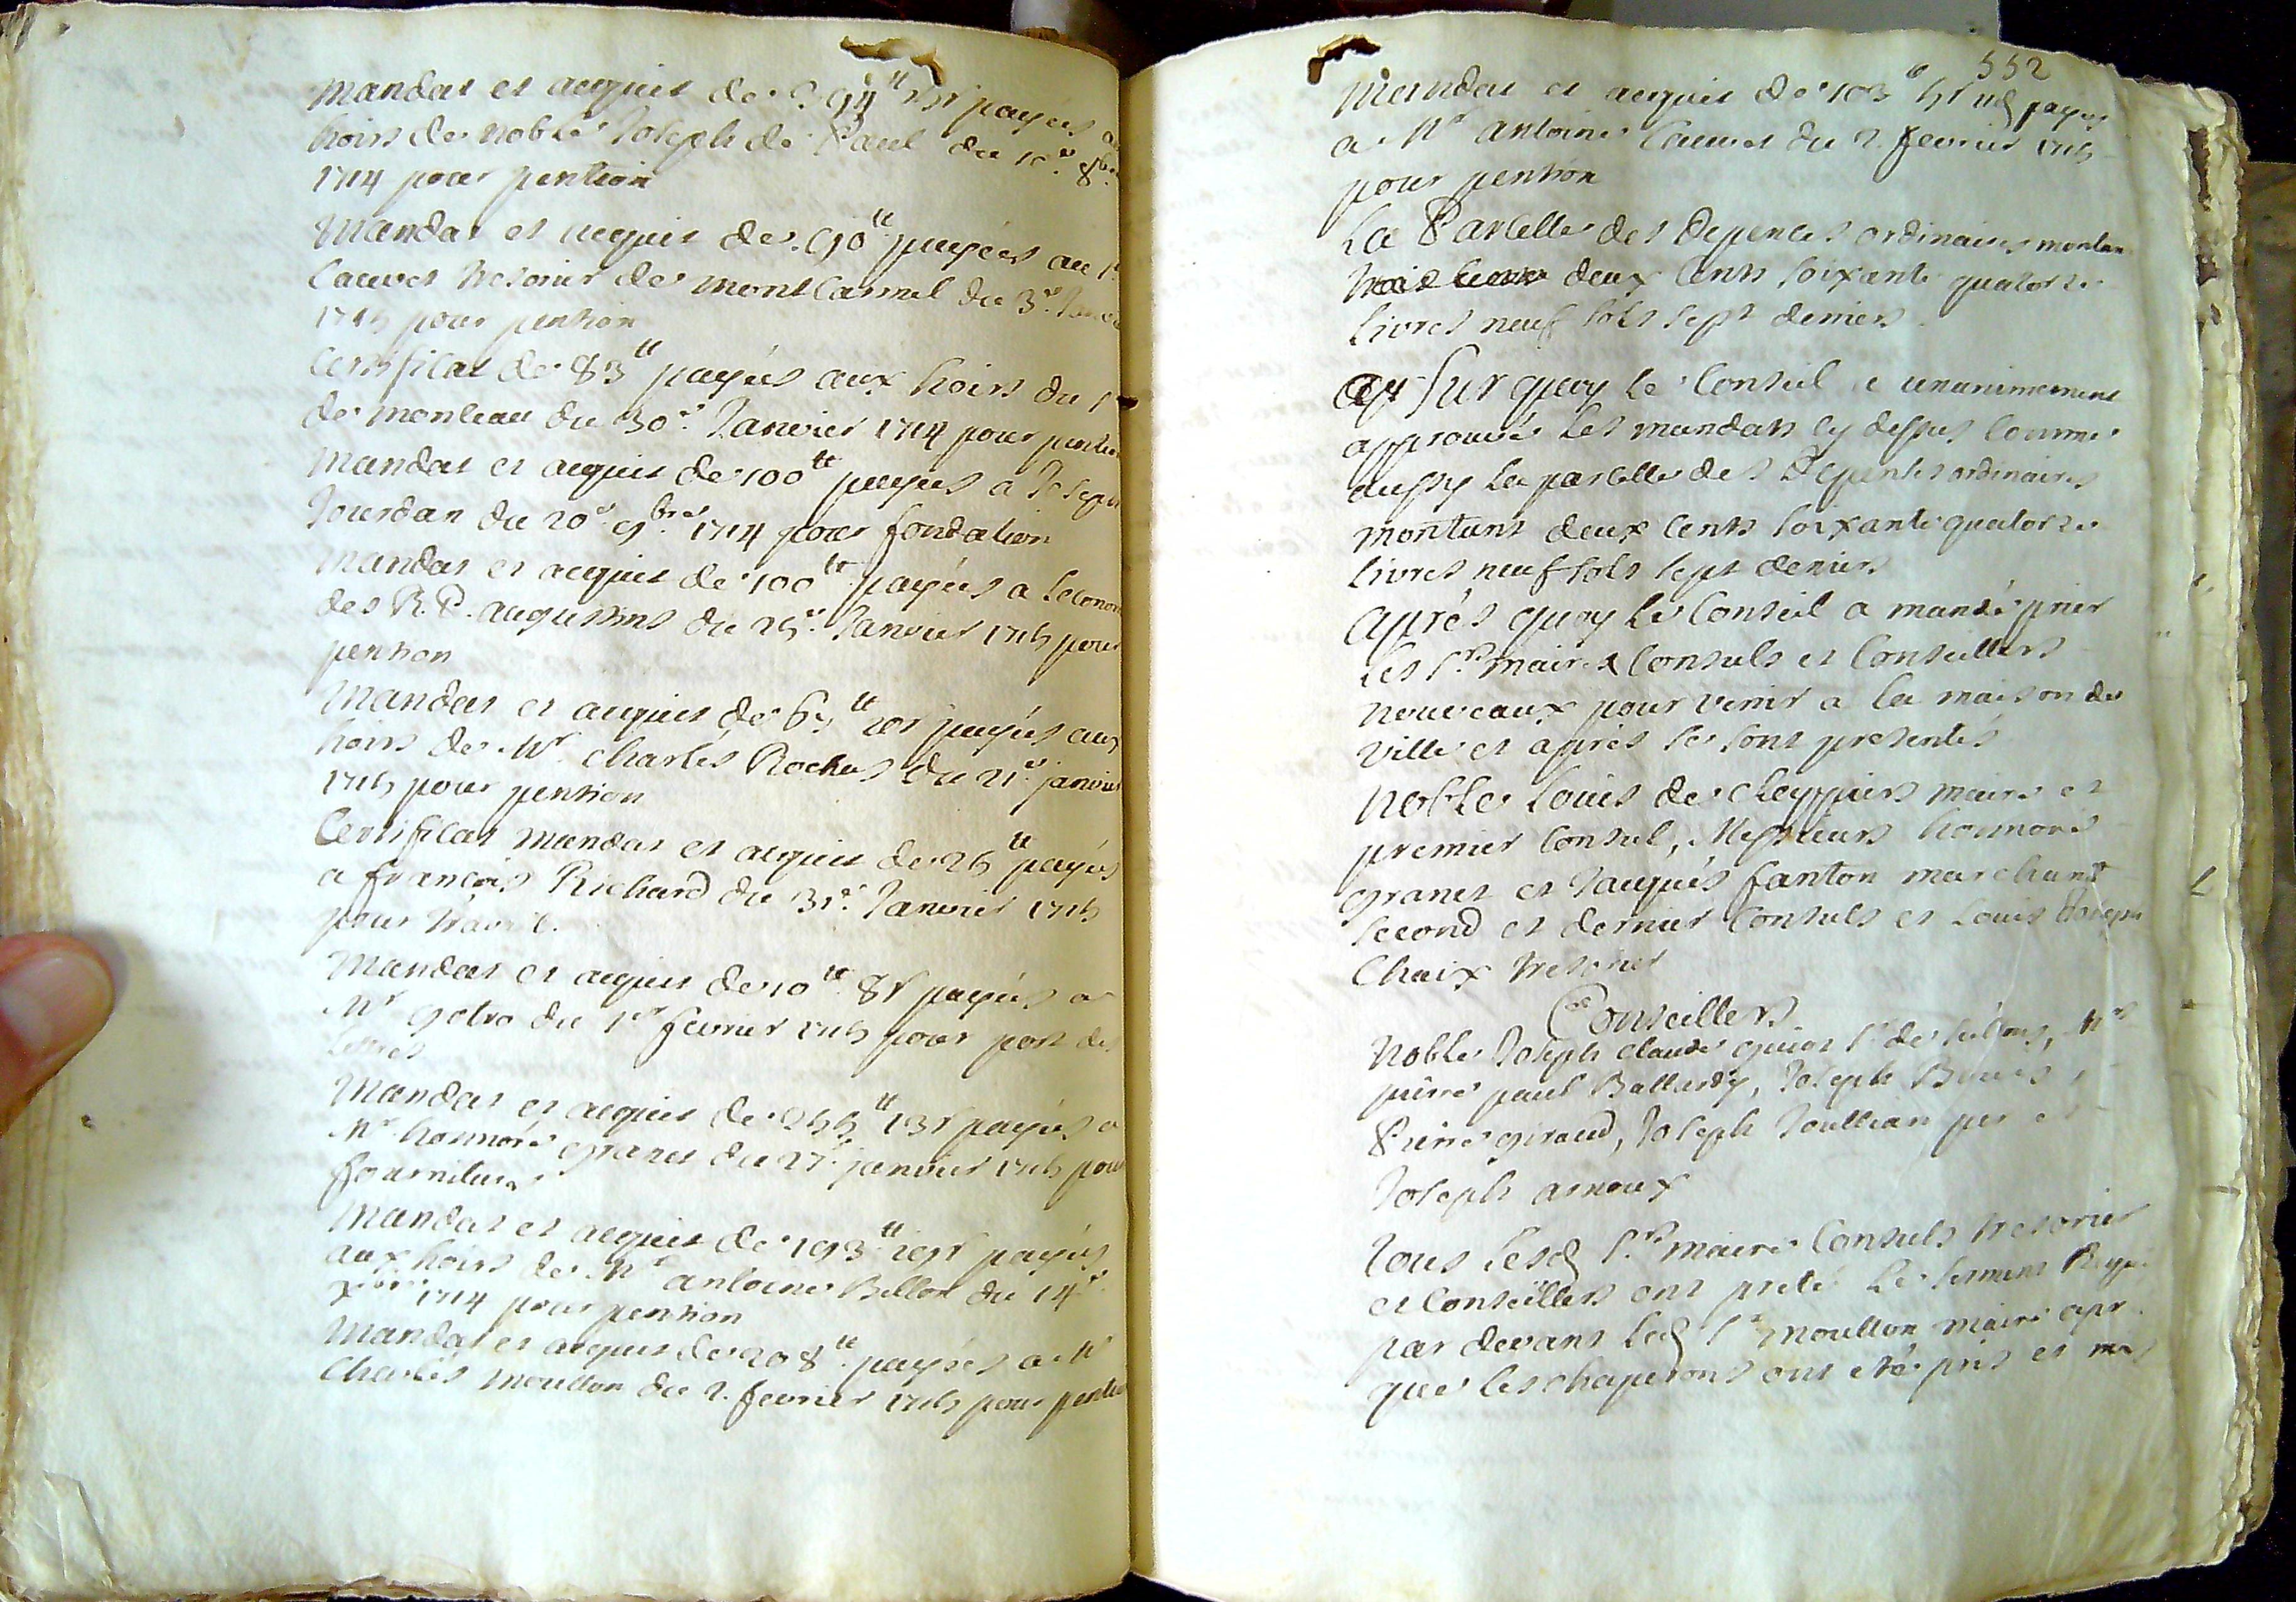 Mandat et acquit de 294tt payées
hoirs de noble Joseph de Paul du 10e 8bre
1714 pour pention
Mandat et acquit de 90tt payées au sr
Cauvet tresorier de mont Carmel du 3e
1715 pour pention
Certificat de 83tt payées aux hoirs du sr
de monteau du 30e Janvier 1714 pour
Mandat et acquit de 100tt payées a Joseph
Jourdan du 20e 9bre 1714 pour fondation
Mandat et acquit de 100tt payées a
des R. P. augustins du 25e Janvier 1715 pour
pention
Mandat et acquit de payées aux
hoirs de Mr Charles Rochas du 21e janvier
1715 pour pention
Certificat mandat et acquit de 25tt payées
a françois Richard du 31e Janvier 1715
pour travail.
Mandat et acquit de 10tt 8s payées a
Mr du 1er fevrier 1715 pour port de
lettres
Mandat et acquit de 255tt 13s payées a
Mr honnoré granet du 27e janvier 1715 pour
fourniture
Mandat et acquit de 193tt 19s payées
aux hoirs de Mr antoine Bellon du 14e
xbre 1714 pour pention
Mandat et acquit de 208tt payées a Mr
Charles moutton du 2. fevrier 1715 pour
552
Mandat et acquit de 103tt 5s payées
a Mr antoine Cauvet du 2. fevrier 1715
pour pention
La Parcelle des Depences ordinaires montan
deux Cents soixante quatorze
livres neuf sols sept deniers
Sur quoy le Conseil a unanimement
approuvé les mandats cy dessus comme
aussy la parcelle des Depences ordinaires
montant deux cents soixante quatorze
livres neuf sols sept deniers
après quoy le Conseil a mandé prier
Les srs maire Consuls et Conseillers
nouveaux pour venir a la maison de
ville et après se sont presentés
Noble Louis de cleppiers maire et
premier Consul, Messieurs honnoré
granet et Jacques fanton marchant
second et dernier Consuls et Louis Joseph
Chaix tresorier
Conseillers
Noble Joseph claude sr de Mrs
pierre paul Ballardy, Joseph
Pierre giraud, Joseph Joullian et
Joseph arnoux
Tous lesd srs maire Consuls tresorier
et Conseillers ont preté le serment Requis
par devant led sr moutton maire
que les chaperons ont eté pris et mis